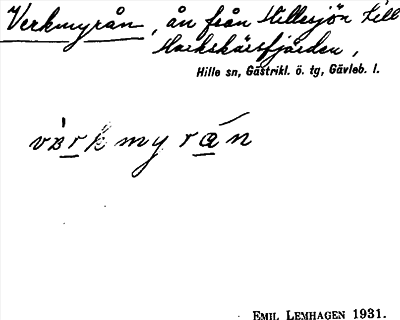 Verkmyrån, ån från Hillesjön till
Harkskärsfjärden,
Hille sn, Gästrikl. ö. tg, Gävleb. l.
värkmyrån
EMIL LEMHAGEN 1931.